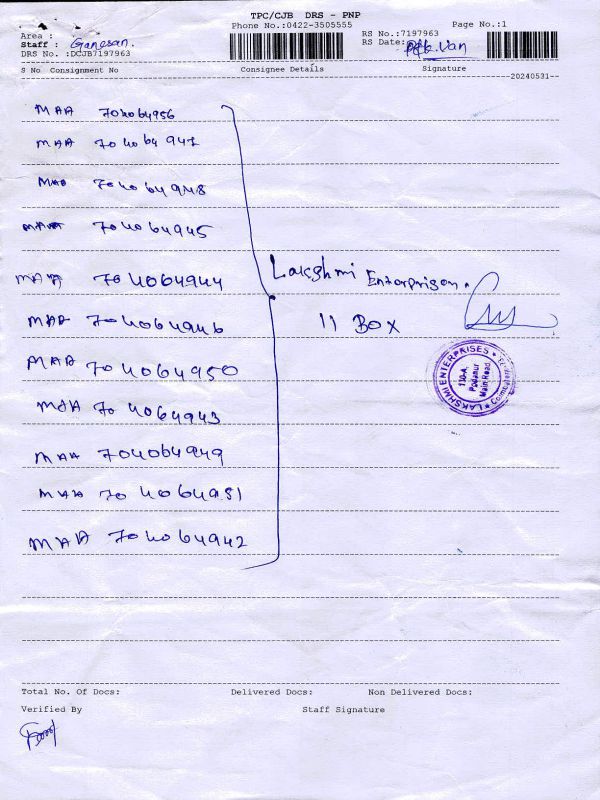 TPC/CJB DRS - PNP
Phone No.:0422-3505555 Page No.:1
Area : RS No.:7197963
Staff : Ganesan. RS Date:
DRS No. :DCJB7197963 Van
S No Consignment No Consignee Details Signature
20240531
MAA 704064956
MAA 704064947
MAA 704064948
MAA 704064945
MAA 704064944
Lakshmi Enterprises.
MAA 704064946
11 BOX
MAA 704064950
LAKSHMI ENTERPRISES
110-A,
Podanur
Main Road
MAA 704064943
MAA 704064949
MAA 704064951
MAA 704064942
Total No. Of Docs: Delivered Docs: Non Delivered Docs:
Verified By Staff Signature